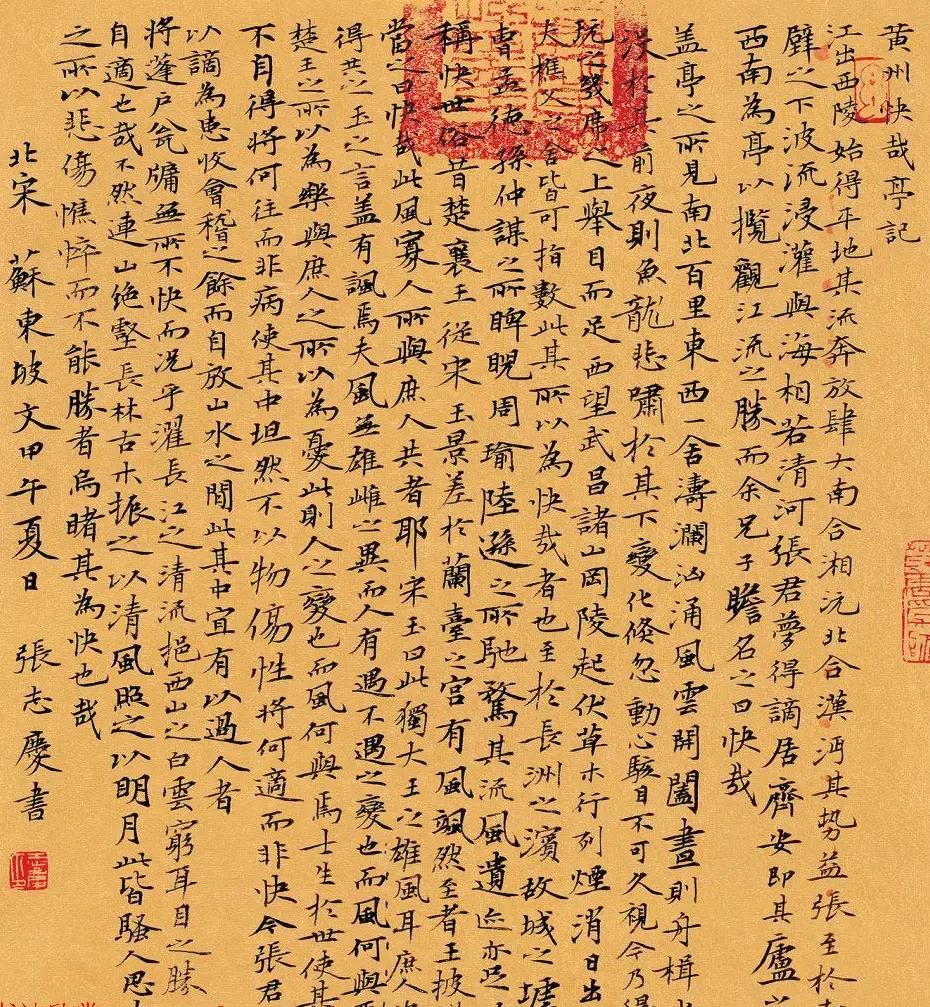 黄州快哉亭記
江出西陵始得平地其流奔放肆大南合湘沅北合漢沔其勢益張至於
壁之下波流浸灌與海相若清河張君夢得謫居齊安即其廬之
西南為亭以攬觀江流之勝而余兄子瞻名之曰快哉
盖亭之所見南北百里東西一舍濤瀾洶涌風雲開闔晝則舟楫
沒於其前夜則魚龍悲嘯於其下變化倏忽動心駭目不可久視今乃得
玩之几席之上舉目而足西望武昌諸山岡陵起伏草木行列煙消日出
夫樵父之舍皆可指數此其所以為快哉者也至於長洲之濱故城之墟
曹孟德孫仲謀之所睥睨周瑜陸遜之所馳騖其流風遺迹亦足
稱快世俗昔楚襄王從宋玉景差於蘭臺之宮有風颯然至者王披
當之曰快哉此風寡人所與庶人共者耶宋玉曰此獨大王之雄風耳庶人
得共之玉之言盖有諷焉夫風無雄雌之異而人有遇不遇之變
楚王之所以為樂與庶人之所以為憂此則人之變也而風何與焉士生於世使其
不自得將何往而非病使其中坦然不以物傷性將何適而非快今張君
以謫為患收會稽之餘而自放山水之間此其中宜有以過人者
將蓬户瓮牖無所不快而况乎濯長江之清流挹西山之白雲窮耳目之勝
自適也哉不然連山绝壑長林古木振之以清風照之以明月此皆騷人思
之所以悲傷憔悴而不能勝者烏睹其為快也哉
北宋 蘇東坡文甲午夏日 張志慶書